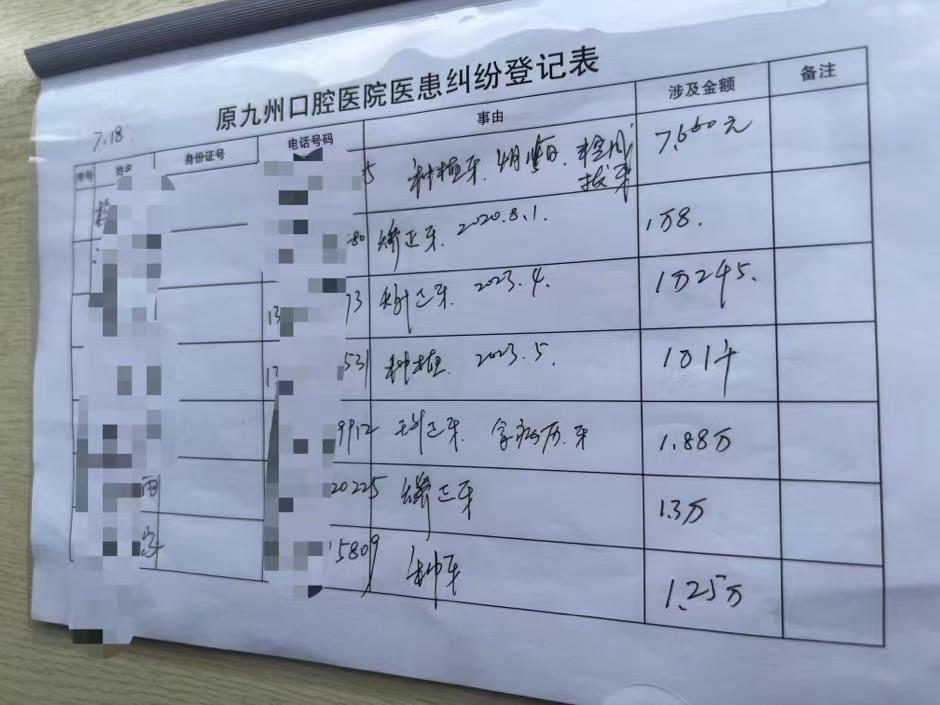 原九州口腔医院医患纠纷登记表
7.18.
序号 姓名 身份证号 电话号码 事由 涉及金额 备注
5 种植牙. 拔牙 7,660元
280 矫正牙. 2020.8.1. 1万8.
13 73 矫正牙. 2023.4. 1万245.
1 531 种植. 2023.5. 1万1千
9912 矫正牙. 牙 1.88万
雨 20225 矫正牙 1.3万
15809 种牙 1.25万